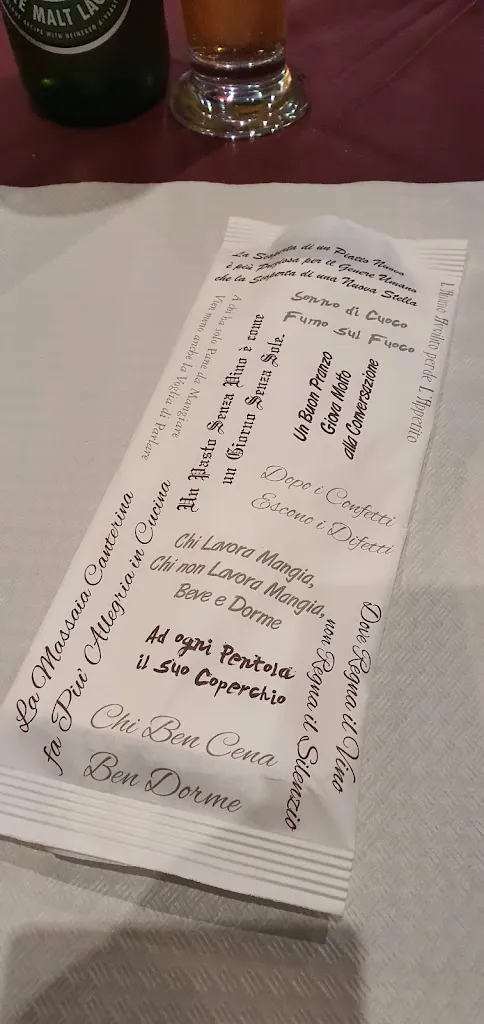 E MALT LAG
La Scoperta di un Piatto Nuovo
è più Preziosa per il Genere Umano
che la Scoperta di una Nuova Stella
Sonno di Cuoco
Fumo sul Fuoco
L'Uomo Avolito perde L'Appetito
A chi ha solo Pane da Mangiare
Vien meno anche la Voglia di Parlare
Un Pasto Senza Vino è come
un Giorno Senza Sole.
Un Buon Pranzo
Giova Molto
alla Conversazione
Dopo i Confetti
Escono i Difetti
Chi Lavora Mangia,
Chi non Lavora Mangia,
Beve e Dorme
La Massaia Canterina
fa Piu' Allegria in Cucina
Ad ogni Pentola
il suo Coperchio
Dove Regna il Vino
non Regna il Silenzio
Chi Ben Cena
Ben Dorme